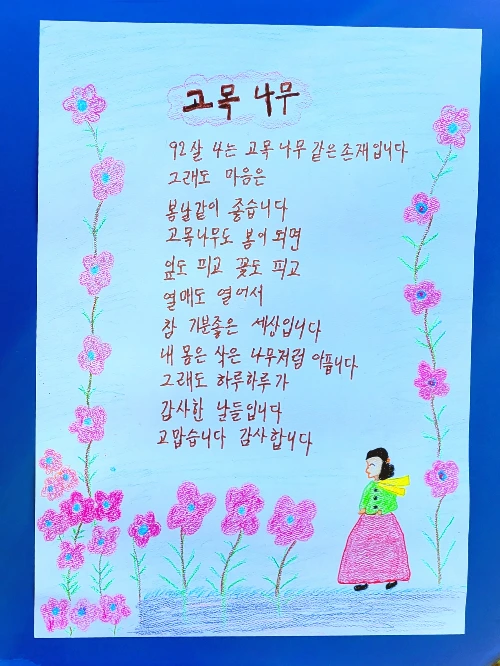 고목 나무
92살 나는 고목 나무 같은 존재입니다
그래도 마음은
봄날같이 좋습니다
고목나무도 봄이 되면
잎도 피고 꽃도 피고
열매도 열어서
참 기분좋은 세상입니다
내 몸은 삭은 나무처럼 아픕니다
그래도 하루하루가
감사한 날들입니다
고맙습니다 감사합니다